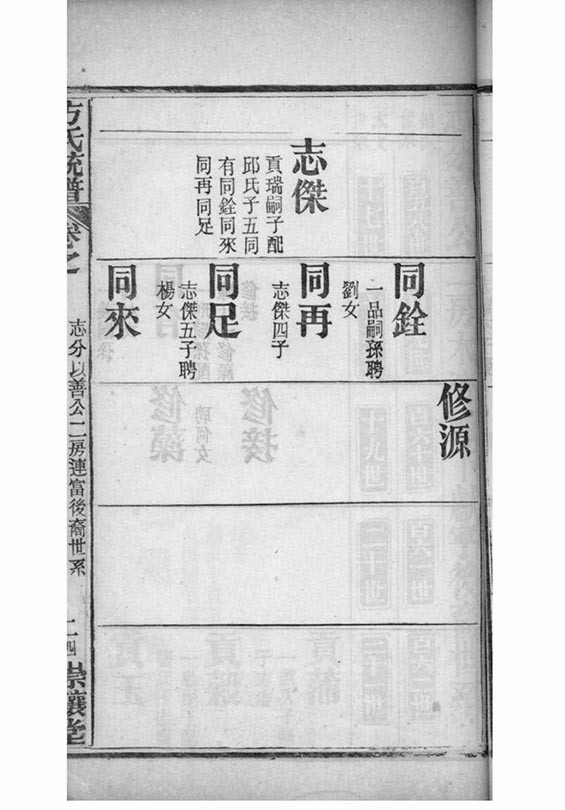 志傑
貢瑞嗣子配
邱氏子五同
有同銓同來
同再同足
同銓
一品嗣孫聘
劉女
同再
志傑四子
同足
志傑五子聘
楊女
同來
修源
方氏統譜
卷之
志分以善公二房連富後裔世系
二四
崇讓堂